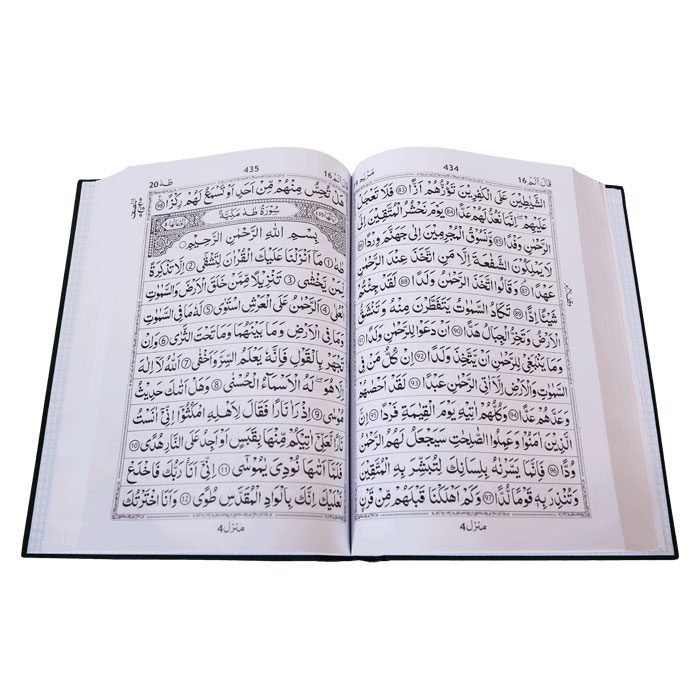 434
قَالَ اَلَمْ 16
الشَّيٰطِيْنَ عَلَى الْكٰفِرِيْنَ تَؤُزُّهُمْ اَزًّا ﴿83﴾ فَلَا تَعْجَلْ
عَلَيْهِمْ اِنَّمَا نَعُدُّ لَهُمْ عَدًّا ﴿84﴾ يَوْمَ نَحْشُرُ الْمُتَّقِيْنَ اِلَى
الرَّحْمٰنِ وَفْدًا ﴿85﴾ وَّنَسُوْقُ الْمُجْرِمِيْنَ اِلٰى جَهَنَّمَ وِرْدًا ﴿86﴾
لَا يَمْلِكُوْنَ الشَّفَاعَةَ اِلَّا مَنِ اتَّخَذَ عِنْدَ الرَّحْمٰنِ
عَهْدًا ﴿87﴾ وَقَالُوا اتَّخَذَ الرَّحْمٰنُ وَلَدًا ﴿88﴾ لَقَدْ جِئْتُمْ
شَيْئًا اِدًّا ﴿89﴾ تَكَادُ السَّمٰوٰتُ يَتَفَطَّرْنَ مِنْهُ وَتَنْشَقُّ
الْاَرْضُ وَتَخِرُّ الْجِبَالُ هَدًّا ﴿90﴾ اَنْ دَعَوْا لِلرَّحْمٰنِ وَلَدًا ﴿91﴾
وَمَا يَنْبَغِيْ لِلرَّحْمٰنِ اَنْ يَّتَّخِذَ وَلَدًا ﴿92﴾ اِنْ كُلُّ مَنْ فِي
السَّمٰوٰتِ وَالْاَرْضِ اِلَّا اٰتِي الرَّحْمٰنِ عَبْدًا ﴿93﴾ لَقَدْ اَحْصٰهُمْ
وَعَدَّهُمْ عَدًّا ﴿94﴾ وَكُلُّهُمْ اٰتِيْهِ يَوْمَ الْقِيٰمَةِ فَرْدًا ﴿95﴾ اِنَّ
الَّذِيْنَ اٰمَنُوْا وَعَمِلُوا الصّٰلِحٰتِ سَيَجْعَلُ لَهُمُ الرَّحْمٰنُ
وُدًّا ﴿96﴾ فَاِنَّمَا يَسَّرْنٰهُ بِلِسَانِكَ لِتُبَشِّرَ بِهِ الْمُتَّقِيْنَ
وَتُنْذِرَ بِهٖ قَوْمًا لُّدًّا ﴿97﴾ وَكَمْ اَهْلَكْنَا قَبْلَهُمْ مِّنْ قَرْنٍ
منزل 4
435
طٰهٰ 20
هَلْ تُحِسُّ مِنْهُمْ مِّنْ اَحَدٍ اَوْ تَسْمَعُ لَهُمْ رِكْزًا ﴿98﴾
سُوْرَةُ طٰهٰ مَكِّيَّةٌ
بِسْمِ اللّٰهِ الرَّحْمٰنِ الرَّحِيْمِ
طٰهٰ ﴿1﴾ مَا اَنْزَلْنَا عَلَيْكَ الْقُرْاٰنَ لِتَشْقٰى ﴿2﴾ اِلَّا تَذْكِرَةً
لِّمَنْ يَّخْشٰى ﴿3﴾ تَنْزِيْلًا مِّمَّنْ خَلَقَ الْاَرْضَ وَالسَّمٰوٰتِ
الْعُلٰى ﴿4﴾ اَلرَّحْمٰنُ عَلَى الْعَرْشِ اسْتَوٰى ﴿5﴾ لَهٗ مَا فِي السَّمٰوٰتِ
وَمَا فِي الْاَرْضِ وَمَا بَيْنَهُمَا وَمَا تَحْتَ الثَّرٰى ﴿6﴾ وَاِنْ
تَجْهَرْ بِالْقَوْلِ فَاِنَّهٗ يَعْلَمُ السِّرَّ وَاَخْفٰى ﴿7﴾ اَللّٰهُ لَا اِلٰهَ
اِلَّا هُوَ لَهُ الْاَسْمَاءُ الْحُسْنٰى ﴿8﴾ وَهَلْ اَتٰىكَ حَدِيْثُ
مُوْسٰى ﴿9﴾ اِذْ رَاٰ نَارًا فَقَالَ لِاَهْلِهِ امْكُثُوْا اِنِّيْ اٰنَسْتُ
نَارًا لَّعَلِّيْ اٰتِيْكُمْ مِّنْهَا بِقَبَسٍ اَوْ اَجِدُ عَلَى النَّارِ هُدًى ﴿10﴾
فَلَمَّا اَتٰىهَا نُوْدِيَ يٰمُوْسٰى ﴿11﴾ اِنِّيْ اَنَا رَبُّكَ فَاخْلَعْ
نَعْلَيْكَ اِنَّكَ بِالْوَادِ الْمُقَدَّسِ طُوًى ﴿12﴾ وَاَنَا اخْتَرْتُكَ
منزل 4